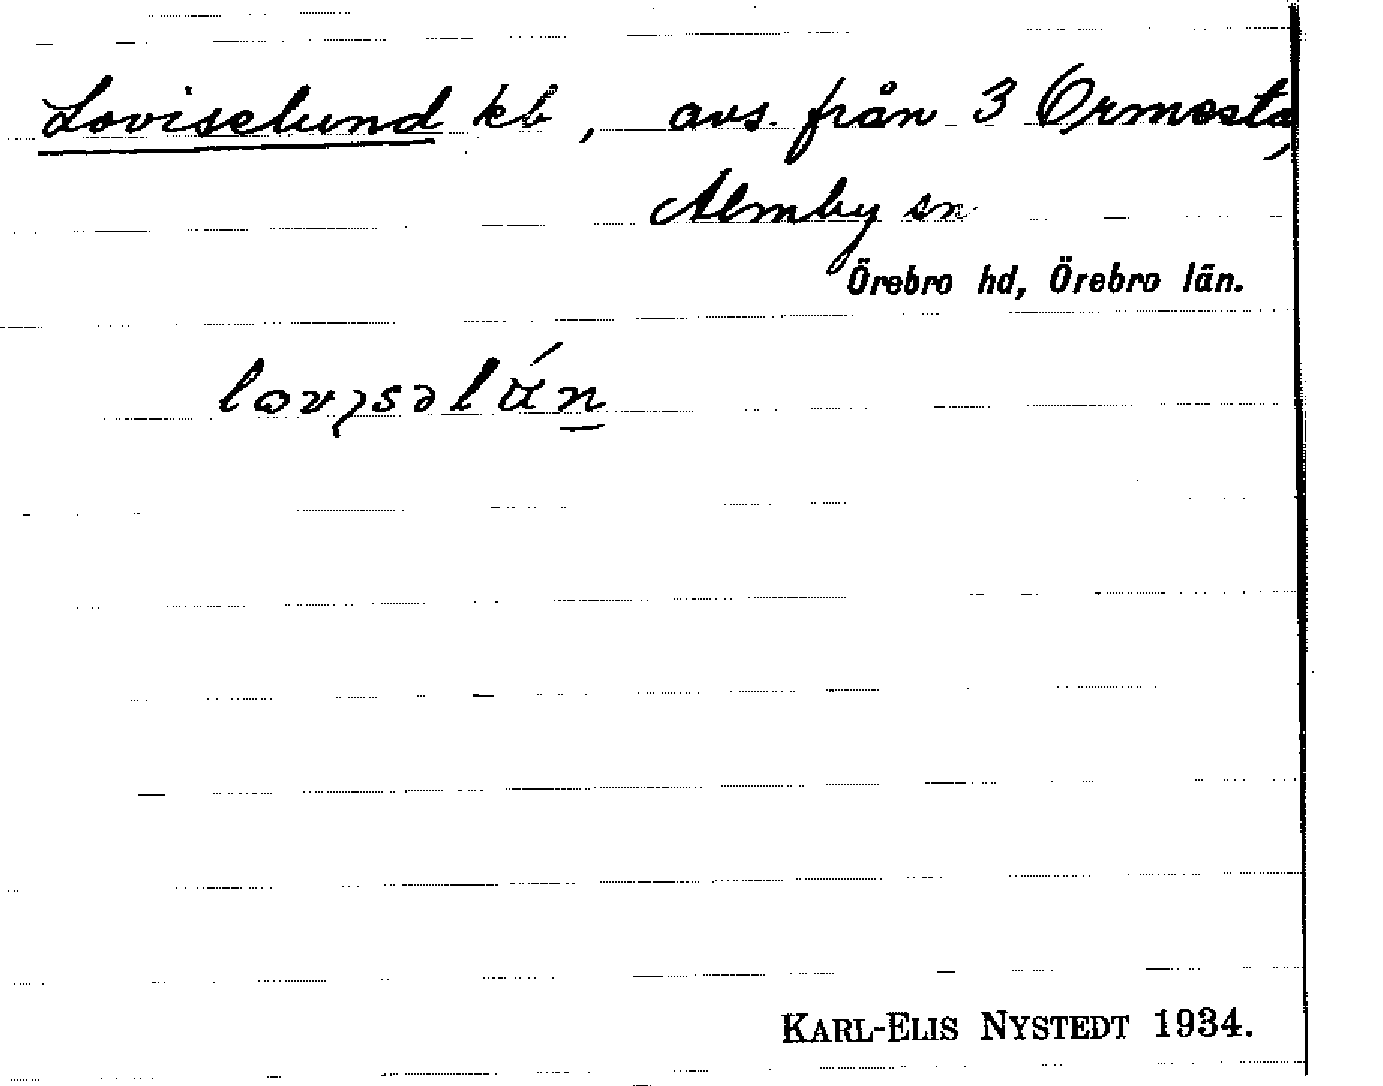 Loviselund kb, avs. från 3 Ormesta,
Almby sn
Örebro hd, Örebro län.
KARL-ELIS NYSTEDT 1934.